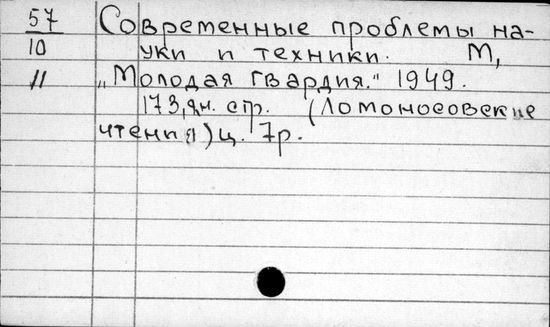 57 Современные проблемы на-
10 уки и техники. М,
11 „Молодая гвардия." 1949.
173, дн. стр. (Ломоносовские
чтения) ц. 7р.